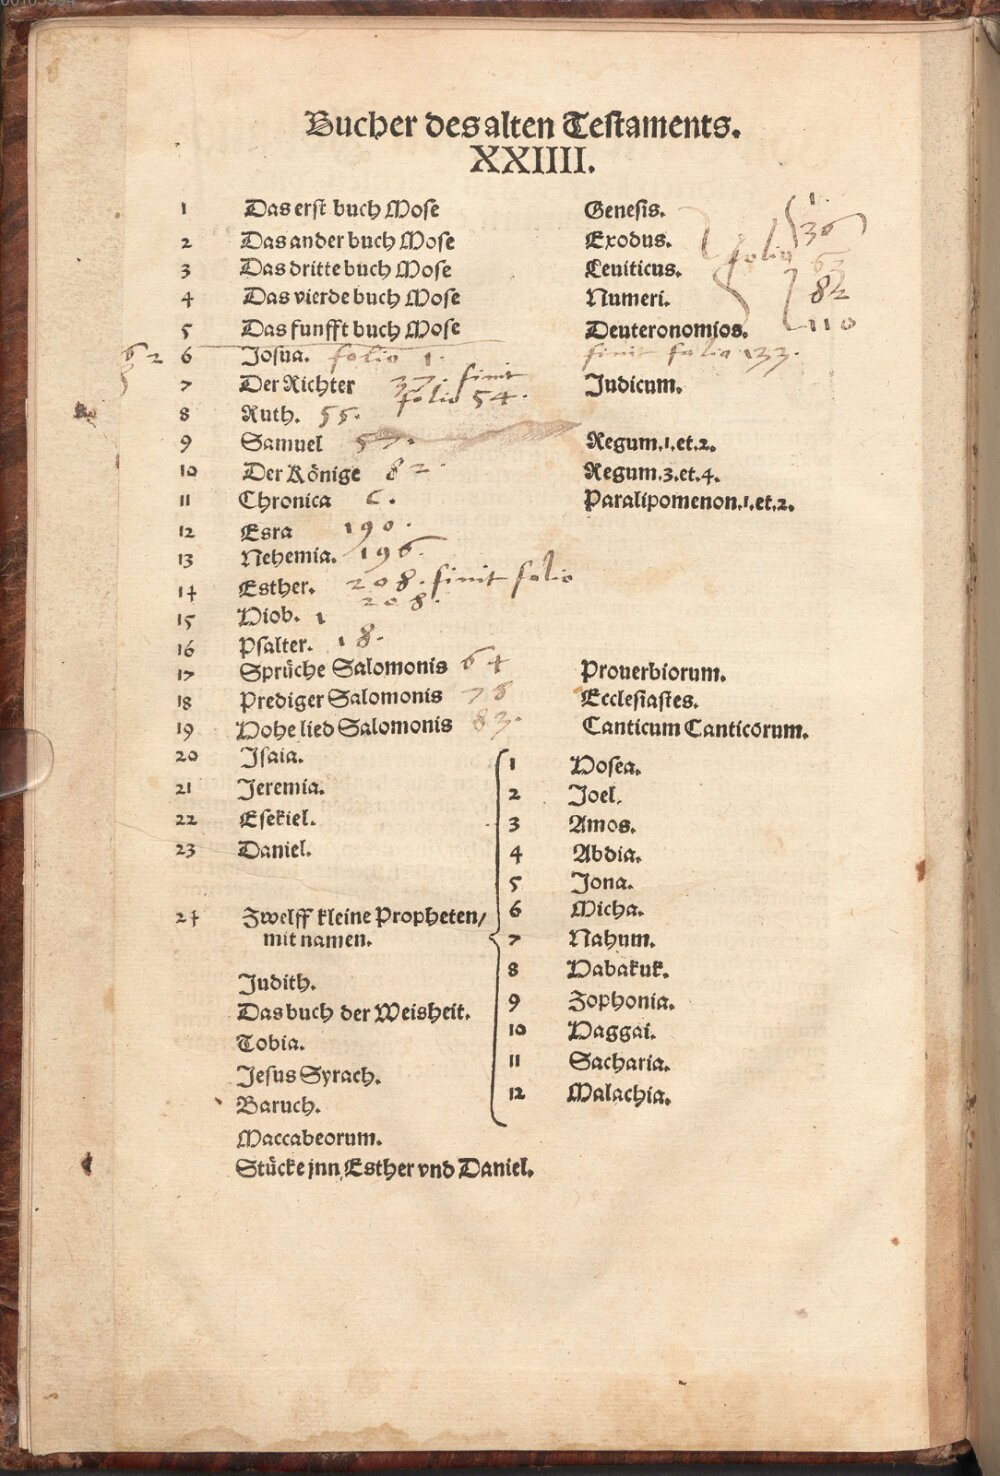 Bucher des alten Testaments.
XXIIII.
1 Das erst buch Mose Genesis. 1.
2 Das ander buch Mose Exodus. folio 36
3 Das dritte buch Mose Leuiticus. 63
4 Das vierde buch Mose Numeri. 82
5 Das funfft buch Mose Deuteronomios. 110
6 Josua. folio 1. finit folio 133.
7 Der Richter 37. finit folio 54. Judicum.
8 Ruth. 55.
9 Samuel 57. Regum.1.et.2.
10 Der Könige 82. Regum.3.et.4.
11 Chronica C. Paralipomenon.1.et.2.
12 Esra 190.
13 Nehemia. 196.
14 Esther. 208. finit folio
208.
15 Hiob. 1
16 Psalter. 18.
17 Sprüche Salomonis 64 Prouerbiorum.
18 Prediger Salomonis 78 Ecclesiastes.
19 Hohe lied Salomonis 83. Canticum Canticorum.
20 Isaia.
21 Jeremia.
22 Esekiel.
23 Daniel.
24 Zwelff kleine Propheten/
mit namen.
1 Hosea.
2 Joel.
3 Amos.
4 Abdia.
5 Jona.
6 Micha.
7 Nahum.
8 Habakuk.
9 Zophonia.
10 Haggai.
11 Sacharia.
12 Malachia.
Judith.
Das buch der Weisheit.
Tobia.
Jesus Syrach.
Baruch.
Maccabeorum.
Stücke jnn Esther vnd Daniel.